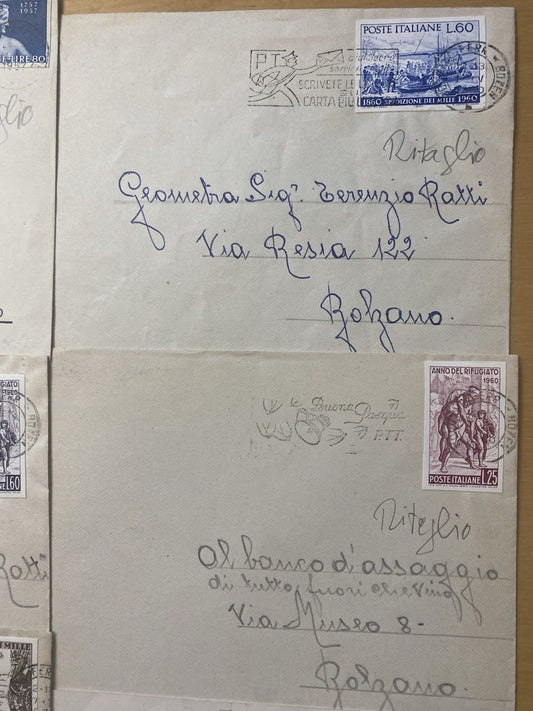 1757
1957
LIRE 80
glio
POSTE ITALIANE L.60
1860 SPEDIZIONE DEI MILLE 1960
PT
SCRIVETE
CARTA
BOZEN
Ritaglio
Geometra Sig. Terenzio Ratti
Via Resia 122
Bolzano.
RIFUGIATO
1960
L.60
Ratti
MILLE
ANNO DEL RIFUGIATO
1960
POSTE ITALIANE L.25
Buona
Pasqua
P.TT.
BOZEN
Ritaglio
Al banco d'assaggio
di tutto fuori che vino
Via Museo 8-
Bolzano.